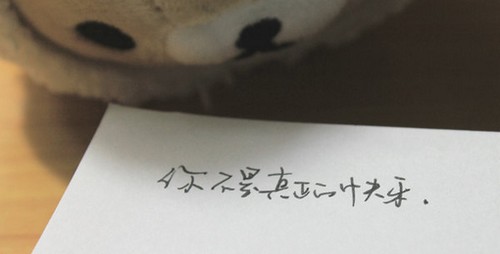 你不是真正的快乐.